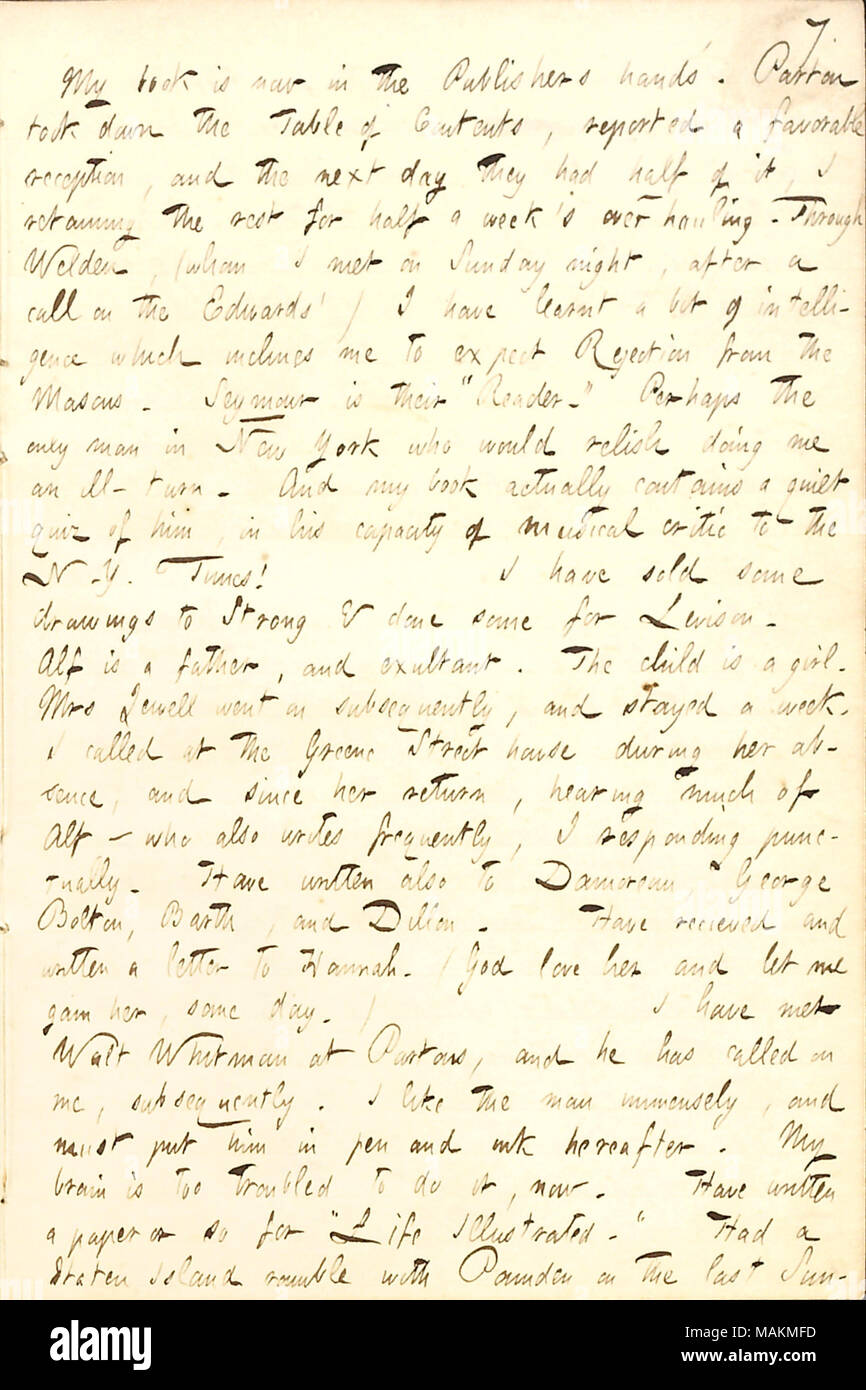 7
My book is now in the Publishers hands. Parton
took down the Table of Contents, reported a favorable
reception, and the next day they had half of it, I
retaining the rest for half a week's over hauling. Through
Welden, (whom I met on Sunday night, after a
call on the Edwards') I have learnt a bit of intelli-
gence which inclines me to expect Rejection from the
Masons. Seymour is their "Reader." Perhaps the
only man in New York who would relish doing me
an ill-turn. And my book actually contains a quiet
quiz of him, in his capacity of musical critic to the
N.Y. Times! I have sold some
drawings to Strong & done some for Levison.
Alf is a father, and exultant. The child is a girl.
Mrs Jewell went on subsequently, and stayed a week.
I called at the Greene Street house during her ab-
sence, and since her return, hearing much of
Alf — who also writes frequently, I responding punc-
tually. Have written also to Damoreau, George
Bolton, Barth, and Dillon. Have recieved and
written a letter to Hannah. (God love her and let me
gain her, some day.) I have met
Walt Whitman at Partons, and he has called on
me, subsequently. I like the man immensely, and
must put him in pen and ink hereafter. My
brain is too troubled to do it, now. Have written
a paper or so for "Life Illustrated." Had a
Staten Island ramble with Pounden on the last Sun-
alamy
Image ID: MAKMFD
www.alamy.com